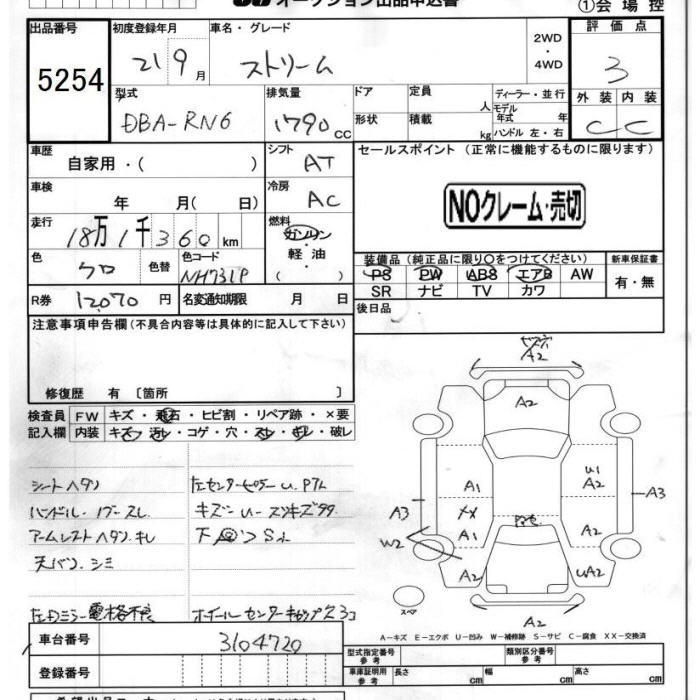 オークション出品申込書
①会場控
出品番号
5254
初度登録年月
21 9月
車名・グレード
ストリーム
2WD
・
4WD
評価点
3
型式
DBA-RN6
排気量
1790cc
ドア
形状
定員
人
積載
kg
ディーラー・並行
モデル年式 年
ハンドル 左・右
外装 内装
C C
車歴
自家用・( )
シフト
AT
セールスポイント (正常に機能するものに限ります)
NOクレーム・売切
車検
年 月( 日)
冷房
AC
走行
18万1千360km
燃料
ガソリン
・
軽油
・
( )
色
クロ
色替
色コード
NH731P
装備品(純正品に限り○をつけてください)
PS PW ABS エアB AW
SR ナビ TV カワ
新車保証書
有・無
R券
12,070円
名変通知期限 月 日
後日品
注意事項申告欄(不具合内容等は具体的に記入して下さい)
修復歴 有 〔箇所 〕
検査員記入欄
FW キズ・飛石・ヒビ割・リペア跡・×要
内装 キズ・汚れ・コゲ・穴・スレ・キレ・破レ
シートヘタリ
ハンドル・ノブースレ
アームレストヘタリ、キレ
天バリ、シミ
左ドミラー電格不良
A2
A2
A1
U1
A2
A3
A3
XX
A1
A2
W2
A2
UA2
A2
スペア
A－キズ E－エクボ U－凹み W－補修跡 S－サビ C－腐食 XX－交換済
車台番号
3104720
登録番号
型式指定番号
参考
類別区分番号
参考
車庫証明用
参考
長さ cm
幅 cm
高さ cm